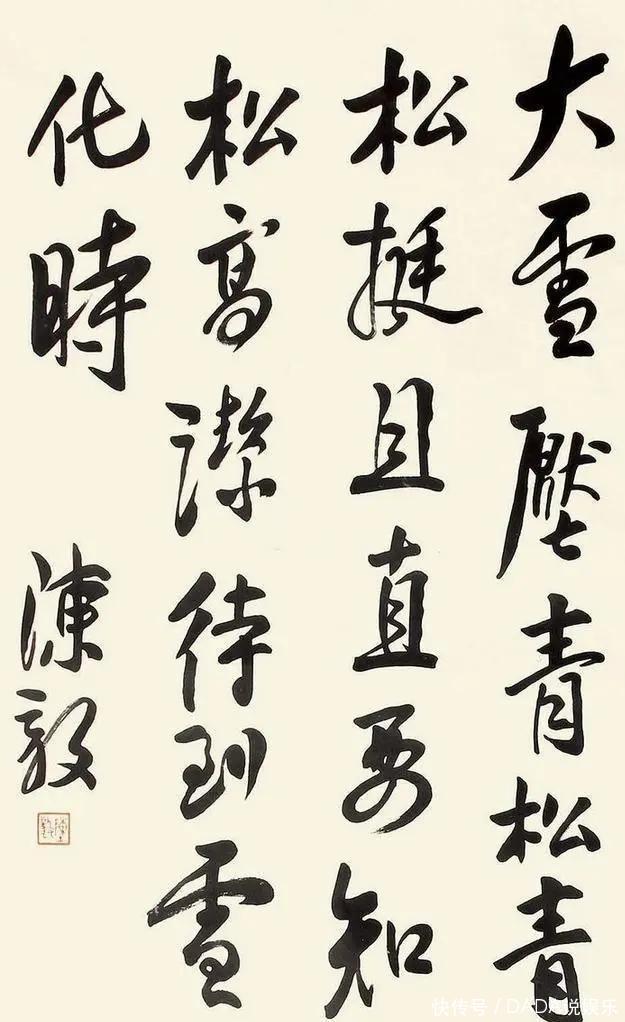 大雪壓青松青
松挺且直要知
松高潔待到雪
化時
陳毅
快传号/DADA说娱乐